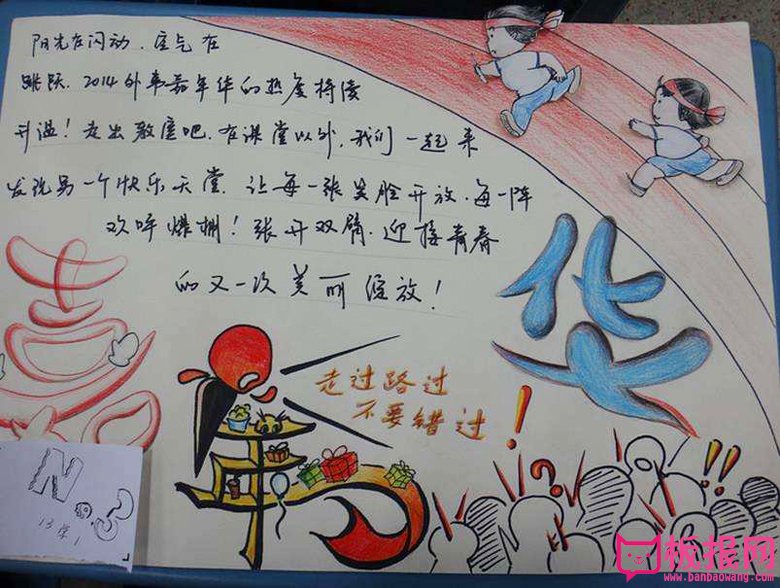 阳光在闪动，空气在
跳跃，2014外事嘉年华的热度持续
升温！走出教室吧，在课堂以外，我们一起来
发现另一个快乐天堂，让每一张笑脸开放，每一阵
欢呼爆棚！张开双臂，迎接青春
的又一次美丽绽放！
嘉
年
华
走过路过
不要错过！
No.3
板报网
www.banbaowang.com